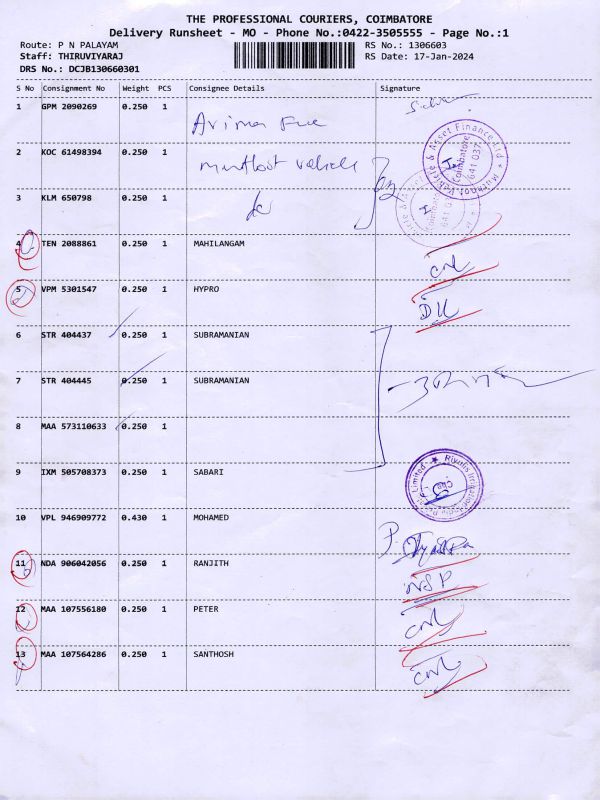 THE PROFESSIONAL COURIERS, COIMBATORE
Delivery Runsheet - MO - Phone No.:0422-3505555 - Page No.:1
Route: P N PALAYAM RS No.: 1306603
Staff: THIRUVIYARAJ RS Date: 17-Jan-2024
DRS No.: DCJB130660301
S No Consignment No Weight PCS Consignee Details Signature
1 GPM 2090269 0.250 1
2 KOC 61498394 0.250 1
3 KLM 650798 0.250 1
4 TEN 2088861 0.250 1 MAHILANGAM
CNL
5 VPM 5301547 0.250 1 HYPRO
6 STR 404437 0.250 1 SUBRAMANIAN
7 STR 404445 0.250 1 SUBRAMANIAN
8 MAA 573110633 0.250 1
9 IXM 505708373 0.250 1 SABARI
10 VPL 946909772 0.430 1 MOHAMED
11 NDA 906042056 0.250 1 RANJITH
NSP
12 MAA 107556180 0.250 1 PETER
CNL
13 MAA 107564286 0.250 1 SANTHOSH
CNL